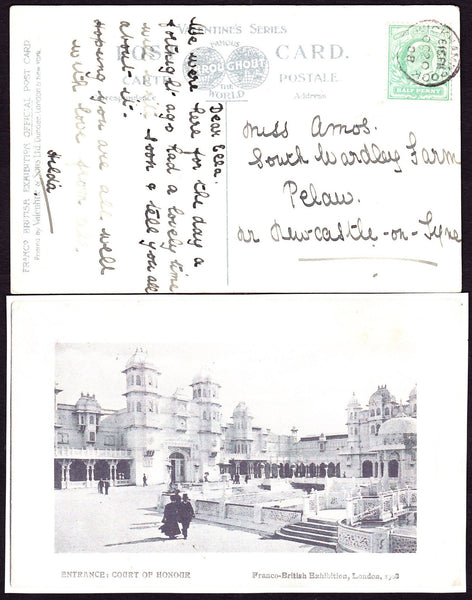 VALENTINE'S SERIES
POST CARD.
FAMOUS
THROUGHOUT
THE
WORLD
POSTALE
Address
HALF PENNY
Miss Amos.
South Wardley Farm
Pelaw.
nr Newcastle-on-Tyne
Dear Ella.
We were here for the day a
fortnight ago had a lovely time
will write soon & tell you all
about it.
Hoping you are all well
with love from
Hilda
FRANCO BRITISH EXHIBITION OFFICIAL POST CARD
Printed by Valentine & Sons Ltd Dundee, London & New York
ENTRANCE: COURT OF HONOUR
Franco-British Exhibition, London, 1908